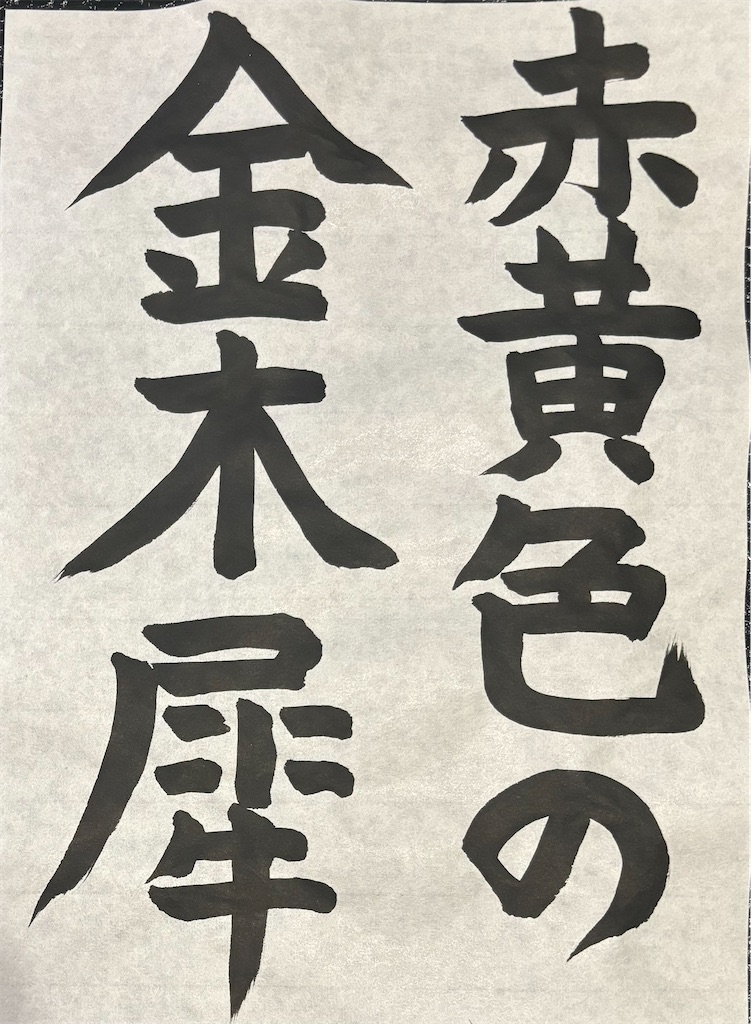 赤黄色の
金木犀